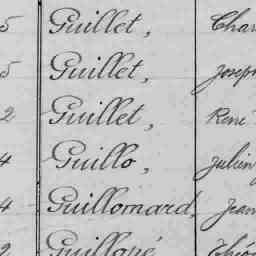 5 Guillet, Char
5 Guillet, Joseph
2 Guillet, René
4 Guillo, Julien
4 Guillomard, Jean
2 Guilloré Théo